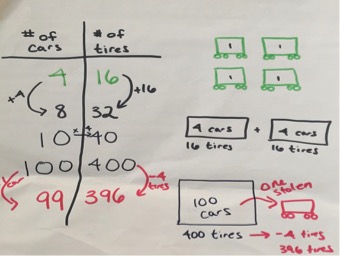 # of cars # of tires
4 16
+4 +16
8 32
10 x4 40
100 400
-1 car -4 tires
99 396
1 1
1 1
4 cars + 4 cars
16 tires 16 tires
one stolen
100 cars
400 tires → -4 tires
396 tires